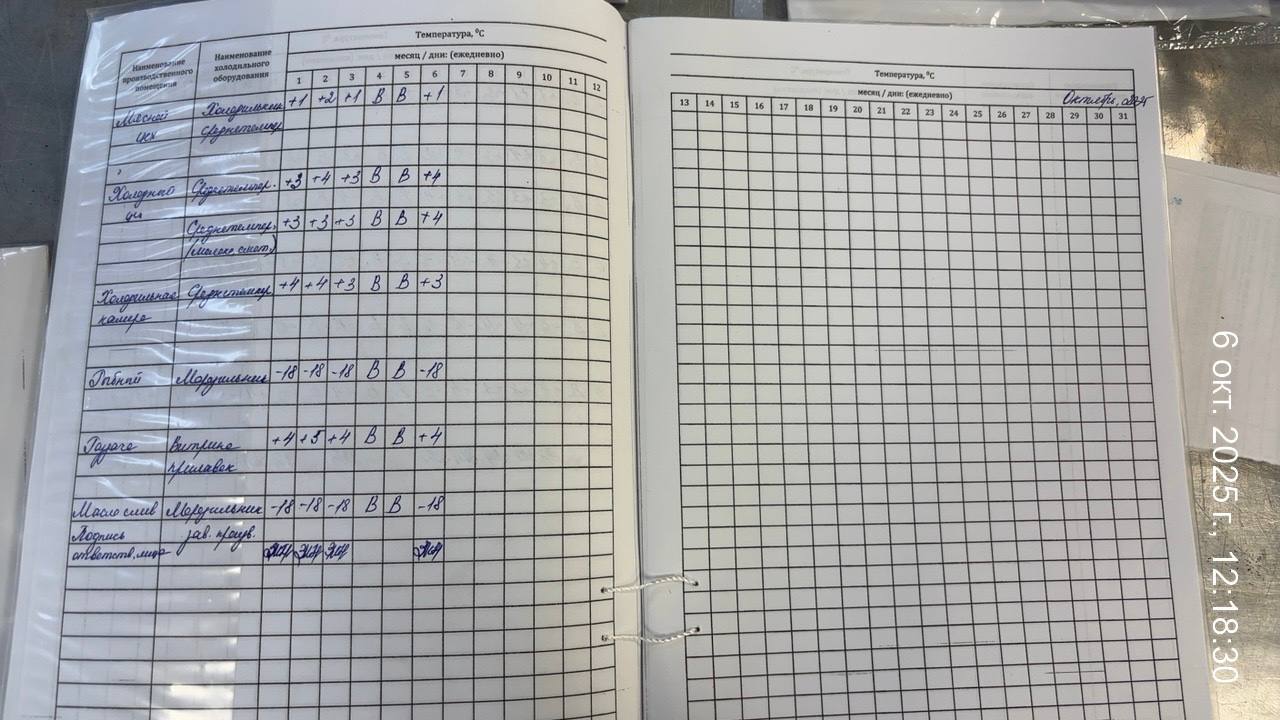 Температура, ⁰С
Наименование производственного помещения
Наименование холодильного оборудования
месяц / дни: (ежедневно)
1 2 3 4 5 6 7 8 9 10 11 12
Мясной Холодильник +1 +2 +1 В В +1
цех среднетемпер
Холодный Среднетемпер. +3 +4 +3 В В +4
цех
Среднетемпер. +3 +3 +3 В В +4
(молоко, смет.)
Холодильная Среднетемпер +4 +4 +3 В В +3
камера
Рыбный Морозильник -18 -18 -18 В В -18
Раздача Витрина +4 +5 +4 В В +4
прилавок
Масло слив Морозильник -18 -18 -18 В В -18
Подпись зав. произв.
ответств. лица
Температура, ⁰С
месяц / дни: (ежедневно)
Октябрь, 2025
13 14 15 16 17 18 19 20 21 22 23 24 25 26 27 28 29 30 31
6 окт. 2025 г., 12:18:30